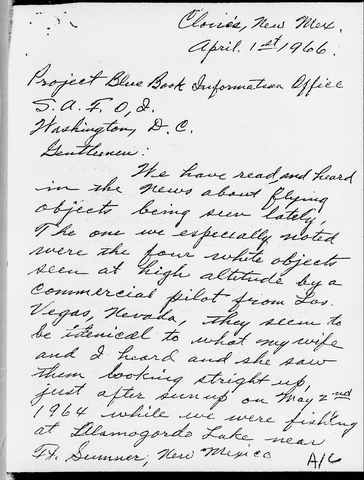 Clovis, New Mex.
April. 1st 1966.
Project Blue Book Information Office
S. A. F. O, I.
Washington, D. C.
Gentlemen:
We have read, and heard
in the news about flying
objects being seen lately,
The one we especially noted
were the four white objects
seen at high altitude by a
commercial pilot from Las.
Vegas, Nevada, they seem to
be itenical to what my wife
and I heard and she saw
them looking stright up,
just after sunup on May 2nd
1964 while we were fishing
at Alamogordo Lake near
Ft. Sumner, New Mexico
A/C